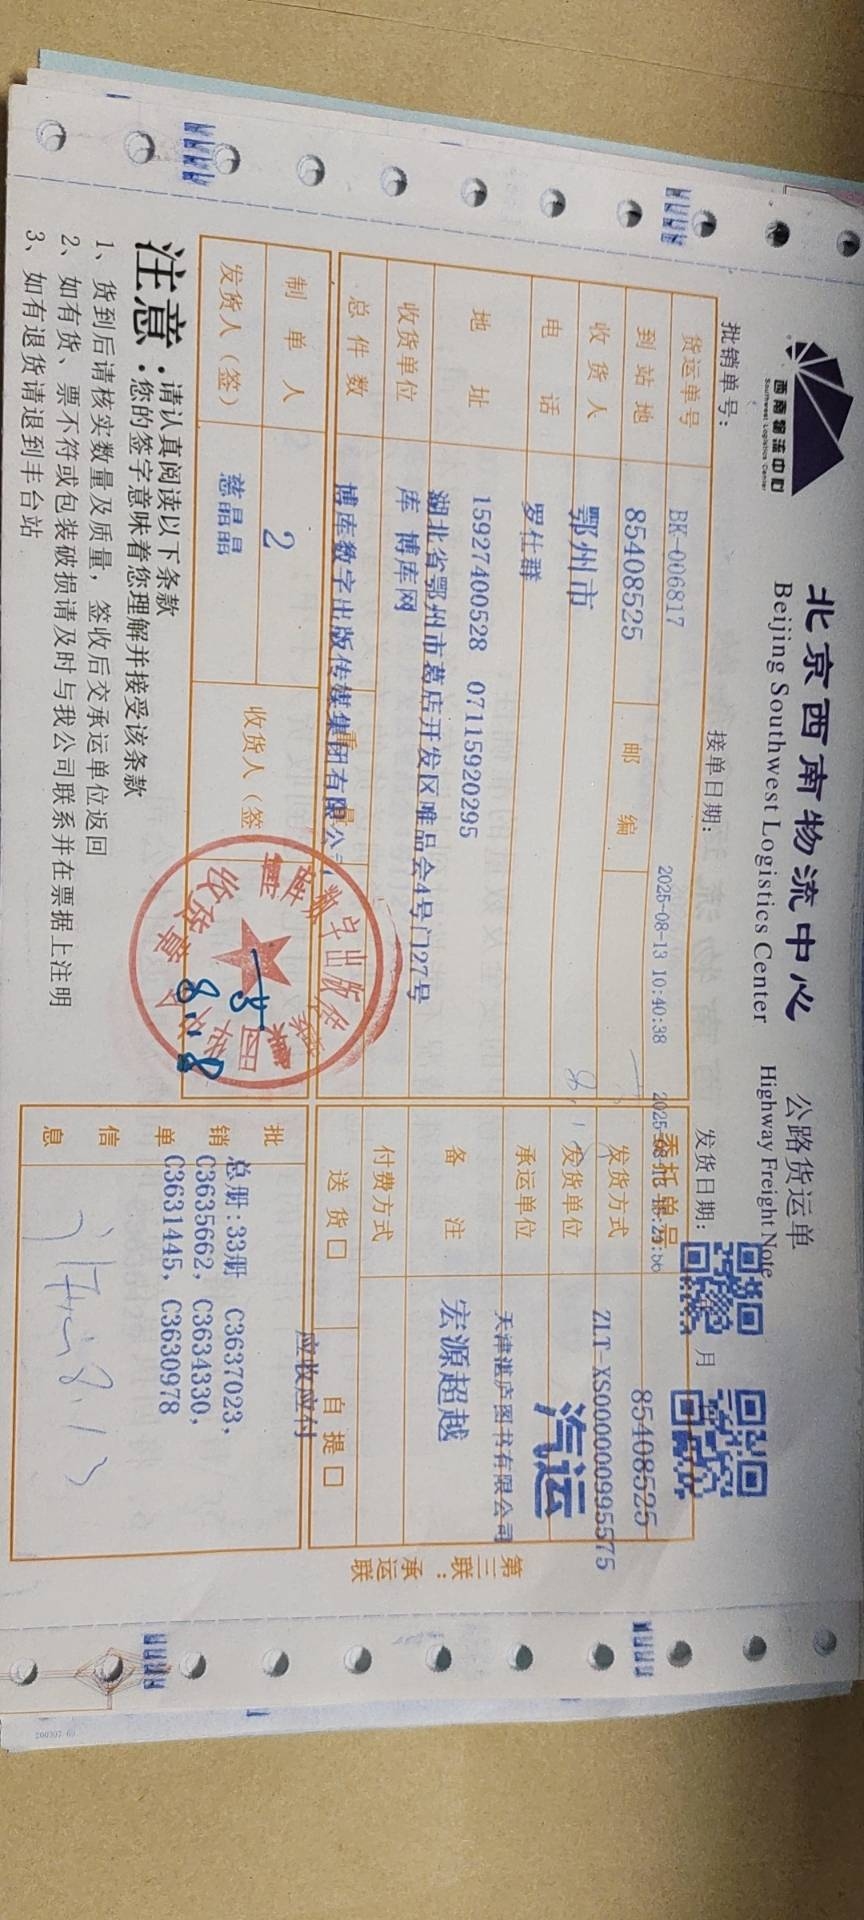 西南物流中心
Southwest Logistics Center
北京西南物流中心
Beijing Southwest Logistics Center
公路货运单
Highway Freight Note
批销单号：
接单日期：
2025-08-13 10:40:38
发货日期：
年 月
BK-006817
货运单号
85408525
邮 编
委托单号
85408525
到站地
鄂州市
发货方式
ZLT-XS000000995575
汽运
收货人
罗仕群
发货单位
天津湛庐图书有限公司
电 话
15927400528 07115920295
承运单位
宏源超越
地 址
湖北省鄂州市葛店开发区唯品会4号门27号
库 博库网
备 注
收货单位
博库数字出版传媒集团有限公司
付费方式
应收应付
总件数
2
重 量
送 货 口
自 提 口
制单人
慈晶晶
收货人（签
发货人（签）
批销单信息
总册:33册 C3637023,
C3635662, C3634330,
C3631445, C3630978
8.13
8.18
第三联：承运联
注意：
请认真阅读以下条款
您的签字意味着您理解并接受该条款
1、货到后请核实数量及质量，签收后交承运单位返回
2、如有货、票不符或包装破损请及时与我公司联系并在票据上注明
3、如有退货请退到丰台站